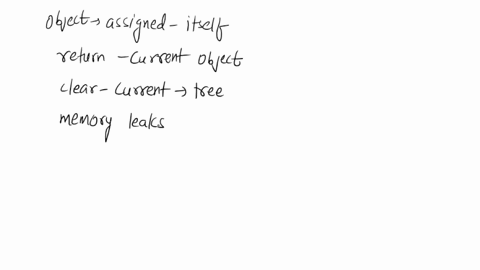 object → assigned - itself
return - current object
clear - current → tree
memory leaks